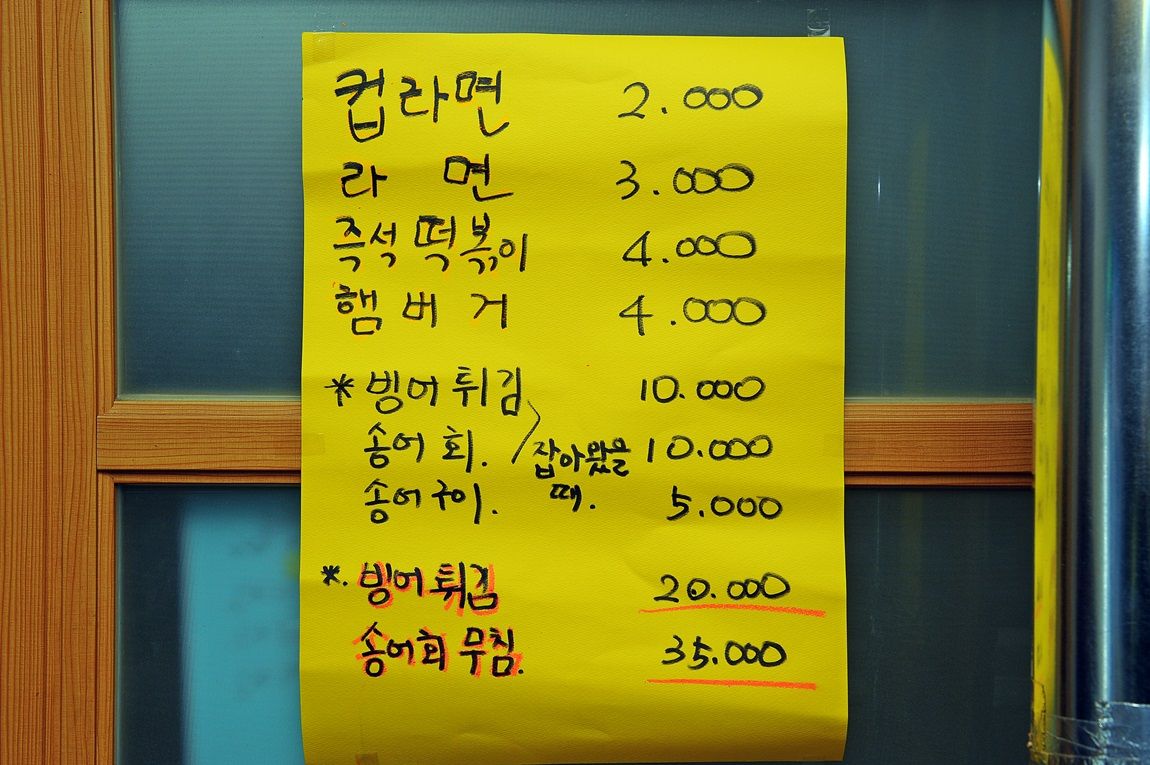 컵라면 2.000
라 면 3.000
즉석 떡볶이 4.000
햄 버 거 4.000
* 빙어 튀김 10.000
송어 회. 잡아왔을 10.000
송어 구이. 때. 5.000
*. 빙어 튀김 20.000
송어회 무침. 35.000